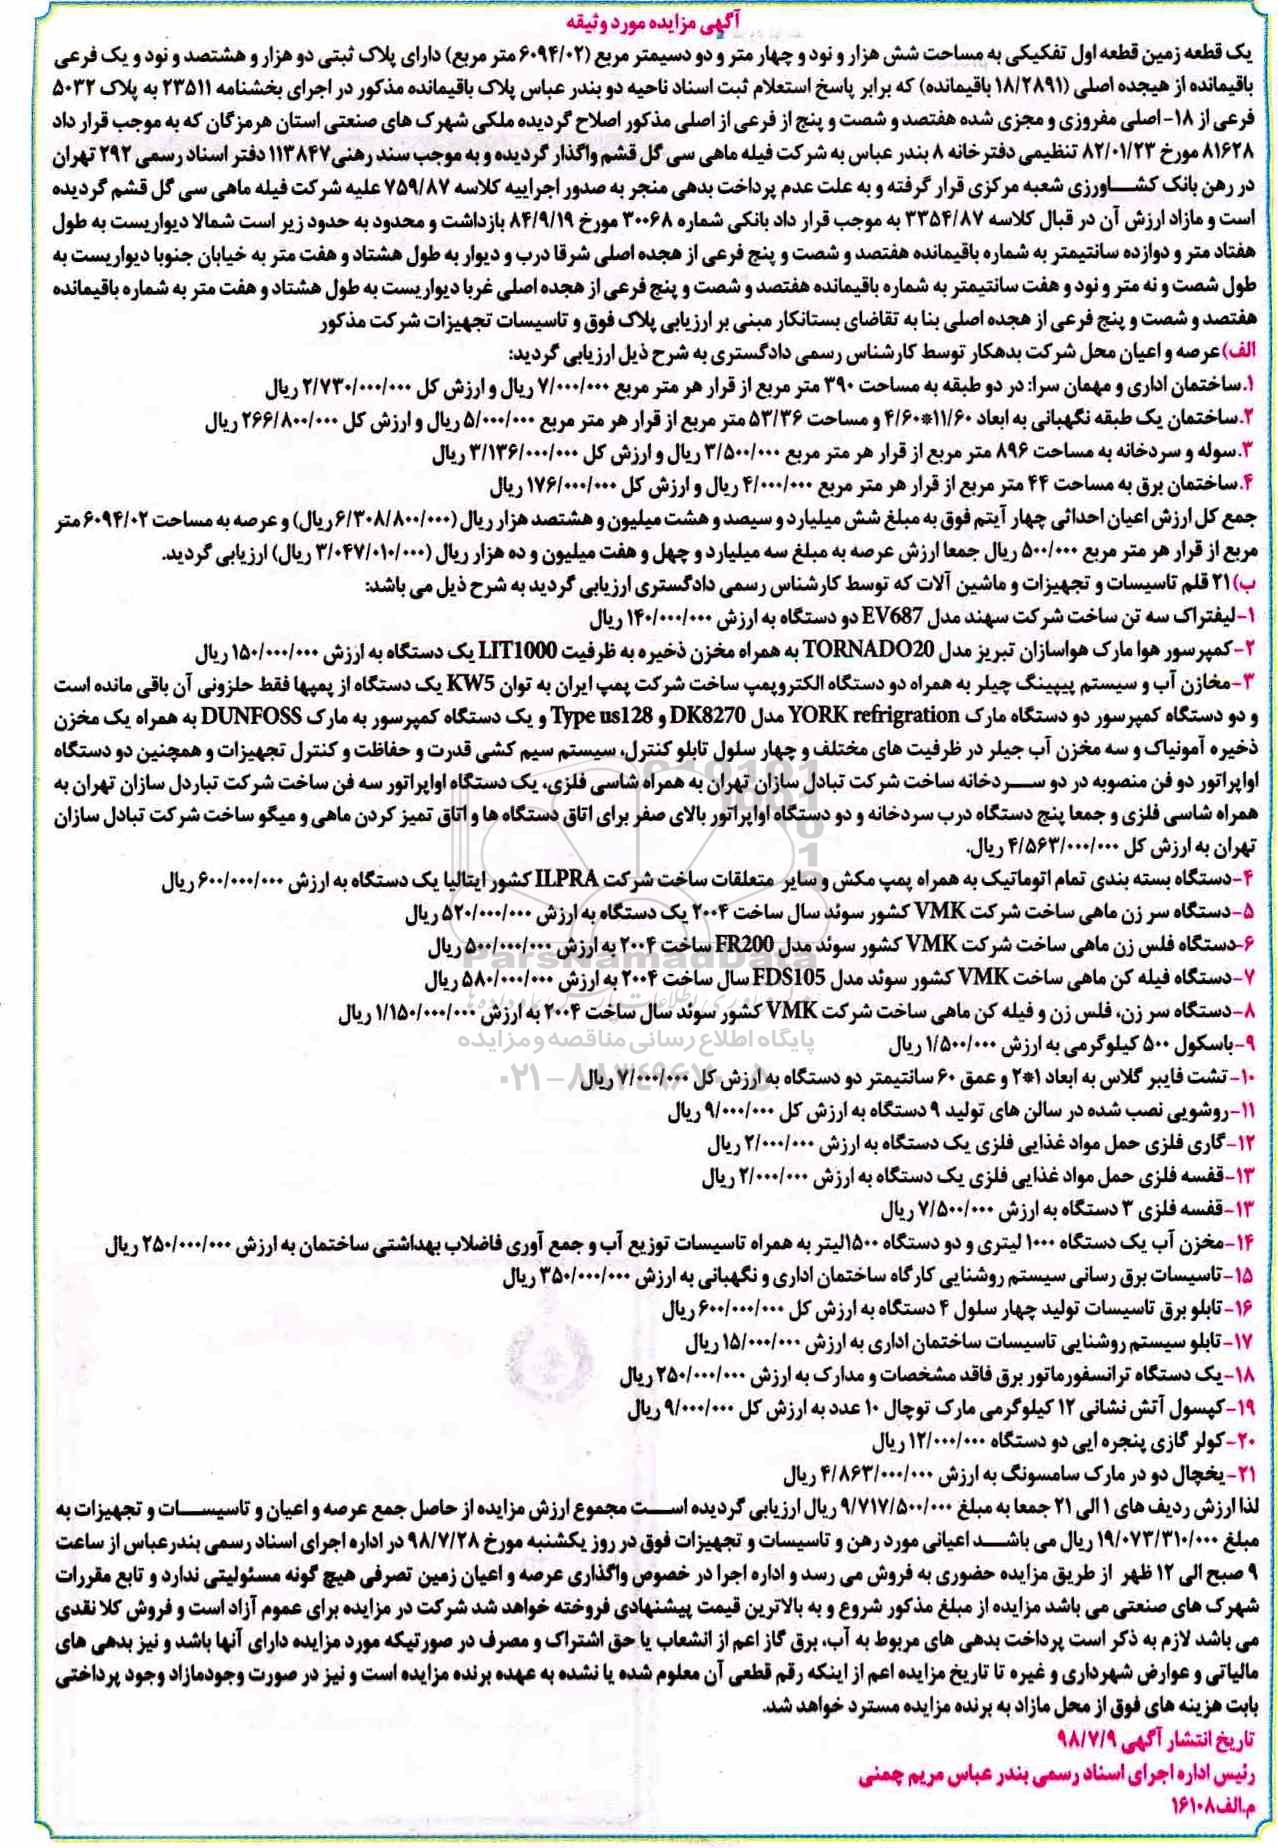 آگهی مزایده مورد وثیقه
یک قطعه زمین قطعه اول تفکیکی به مساحت شش هزار و نود و چهار متر و دو دسیمتر مربع (۶۰۹۴/۰۲ متر مربع) دارای پلاک ثبتی دو هزار و هشتصد و نود و یک فرعی
باقیمانده از هیجده اصلی (۱۸/۲۸۹۱ باقیمانده) که برابر پاسخ استعلام ثبت اسناد ناحیه دو بندر عباس پلاک باقیمانده مذکور در اجرای بخشنامه ۲۳۵۱۱ به پلاک ۵۰۳۲
فرعی از ۱۸- اصلی مفروزی و مجزی شده هفتصد و شصت و پنج از فرعی از اصلی مذکور اصلاح گردیده ملکی شهرک های صنعتی استان هرمزگان که به موجب قرار داد
۸۱۶۲۸ مورخ ۸۲/۰۱/۲۳ تنظیمی دفترخانه ۸ بندر عباس به شرکت فیله ماهی سی گل قشم واگذار گردیده و به موجب سند رهنی ۱۱۳۸۴۷ دفتر اسناد رسمی ۲۹۲ تهران
در رهن بانک کشاورزی شعبه مرکزی قرار گرفته و به علت عدم پرداخت بدهی منجر به صدور اجراییه کلاسه ۷۵۹/۸۷ علیه شرکت فیله ماهی سی گل قشم گردیده
است و مازاد ارزش آن در قبال کلاسه ۳۳۵۴/۸۷ به موجب قرار داد بانکی شماره ۳۰۰۶۸ مورخ ۸۴/۹/۱۹ بازداشت و محدود به حدود زیر است شمالا دیواریست به طول
هفتاد متر و دوازده سانتیمتر به شماره باقیمانده هفتصد و شصت و پنج فرعی از هجده اصلی شرقا درب و دیوار به طول هشتاد و هفت متر به خیابان جنوبا دیواریست به
طول شصت و نه متر و نود و هفت سانتیمتر به شماره باقیمانده هفتصد و شصت و پنج فرعی از هجده اصلی غربا دیواریست به طول هشتاد و هفت متر به شماره باقیمانده
هفتصد و شصت و پنج فرعی از هجده اصلی بنا به تقاضای بستانکار مبنی بر ارزیابی پلاک فوق و تاسیسات تجهیزات شرکت مذکور
الف) عرصه و اعیان محل شرکت بدهکار توسط کارشناس رسمی دادگستری به شرح ذیل ارزیابی گردید:
۱.ساختمان اداری و مهمان سرا: در دو طبقه به مساحت ۳۹۰ متر مربع از قرار هر متر مربع ۷/۰۰۰/۰۰۰ ریال و ارزش کل ۲/۷۳۰/۰۰۰/۰۰۰ ریال
۲.ساختمان یک طبقه نگهبانی به ابعاد ۱۱/۶۰*۴/۶۰ و مساحت ۵۳/۳۶ متر مربع از قرار هر متر مربع ۵/۰۰۰/۰۰۰ ریال و ارزش کل ۲۶۶/۸۰۰/۰۰۰ ریال
۳.سوله و سردخانه به مساحت ۸۹۶ متر مربع از قرار هر متر مربع ۳/۵۰۰/۰۰۰ ریال و ارزش کل ۳/۱۳۶/۰۰۰/۰۰۰ ریال
۴.ساختمان برق به مساحت ۴۴ متر مربع از قرار هر متر مربع ۴/۰۰۰/۰۰۰ ریال و ارزش کل ۱۷۶/۰۰۰/۰۰۰ ریال
جمع کل ارزش اعیان احداثی چهار آیتم فوق به مبلغ شش میلیارد و سیصد و هشت میلیون و هشتصد هزار ریال (۶/۳۰۸/۸۰۰/۰۰۰ ریال) و عرصه به مساحت ۶۰۹۴/۰۲ متر
مربع از قرار هر متر مربع ۵۰۰/۰۰۰ ریال جمعا ارزش عرصه به مبلغ سه میلیارد و چهل و هفت میلیون و ده هزار ریال (۳/۰۴۷/۰۱۰/۰۰۰ ریال) ارزیابی گردید.
ب) ۲۱ قلم تاسیسات و تجهیزات و ماشین آلات که توسط کارشناس رسمی دادگستری ارزیابی گردید به شرح ذیل می باشد:
۱-لیفتراک سه تن ساخت شرکت سهند مدل EV687 دو دستگاه به ارزش ۱۴۰/۰۰۰/۰۰۰ ریال
۲-کمپرسور هوا مارک هواسازان تبریز مدل TORNADO20 به همراه مخزن ذخیره به ظرفیت LIT1000 یک دستگاه به ارزش ۱۵۰/۰۰۰/۰۰۰ ریال
۳-مخازن آب و سیستم پیپینگ چیلر به همراه دو دستگاه الکتروپمپ ساخت شرکت پمپ ایران به توان KW5 یک دستگاه از پمپها فقط حلزونی آن باقی مانده است
و دو دستگاه کمپرسور دو دستگاه مارک YORK refrigration مدل DK8270 و Type us128 و یک دستگاه کمپرسور به مارک DUNFOSS به همراه یک مخزن
ذخیره آمونیاک و سه مخزن آب جیلر در ظرفیت های مختلف و چهار سلول تابلو کنترل، سیستم سیم کشی قدرت و حفاظت و کنترل تجهیزات و همچنین دو دستگاه
اواپراتور دو فن منصوبه در دو سردخانه ساخت شرکت تبادل سازان تهران به همراه شاسی فلزی، یک دستگاه اواپراتور سه فن ساخت شرکت تباردل سازان تهران به
همراه شاسی فلزی و جمعا پنج دستگاه درب سردخانه و دو دستگاه اواپراتور بالای صفر برای اتاق دستگاه ها و اتاق تمیز کردن ماهی و میگو ساخت شرکت تبادل سازان
تهران به ارزش کل ۴/۵۶۳/۰۰۰/۰۰۰ ریال.
۴-دستگاه بسته بندی تمام اتوماتیک به همراه پمپ مکش و سایر متعلقات ساخت شرکت ILPRA کشور ایتالیا یک دستگاه به ارزش ۶۰۰/۰۰۰/۰۰۰ ریال
۵-دستگاه سر زن ماهی ساخت شرکت VMK کشور سوئد سال ساخت ۲۰۰۴ یک دستگاه به ارزش ۵۲۰/۰۰۰/۰۰۰ ریال
۶-دستگاه فلس زن ماهی ساخت شرکت VMK کشور سوئد مدل FR200 ساخت ۲۰۰۴ به ارزش ۵۰۰/۰۰۰/۰۰۰ ریال
ParsNamadData
۷-دستگاه فیله کن ماهی ساخت VMK کشور سوئد مدل FDS105 سال ساخت ۲۰۰۴ به ارزش ۵۸۰/۰۰۰/۰۰۰ ریال
۸-دستگاه سر زن، فلس زن و فیله کن ماهی ساخت شرکت VMK کشور سوئد سال ساخت ۲۰۰۴ به ارزش ۱/۱۵۰/۰۰۰/۰۰۰ ریال
پایگاه اطلاع رسانی مناقصه و مزایده
۹-باسکول ۵۰۰ کیلوگرمی به ارزش ۱/۵۰۰/۰۰۰ ریال
۰۲۱-۸۸۳۴۹۶۷۰-۵
۱۰-تشت فایبر گلاس به ابعاد ۱*۲ و عمق ۶۰ سانتیمتر دو دستگاه به ارزش کل ۷/۰۰۰/۰۰۰ ریال
۱۱-روشویی نصب شده در سالن های تولید ۹ دستگاه به ارزش کل ۹/۰۰۰/۰۰۰ ریال
۱۲-گاری فلزی حمل مواد غذایی فلزی یک دستگاه به ارزش ۲/۰۰۰/۰۰۰ ریال
۱۳-قفسه فلزی حمل مواد غذایی فلزی یک دستگاه به ارزش ۲/۰۰۰/۰۰۰ ریال
۱۳-قفسه فلزی ۳ دستگاه به ارزش ۷/۵۰۰/۰۰۰ ریال
۱۴-مخزن آب یک دستگاه ۱۰۰۰ لیتری و دو دستگاه ۱۵۰۰لیتر به همراه تاسیسات توزیع آب و جمع آوری فاضلاب بهداشتی ساختمان به ارزش ۲۵۰/۰۰۰/۰۰۰ ریال
۱۵-تاسیسات برق رسانی سیستم روشنایی کارگاه ساختمان اداری و نگهبانی به ارزش ۳۵۰/۰۰۰/۰۰۰ ریال
۱۶-تابلو برق تاسیسات تولید چهار سلول ۴ دستگاه به ارزش کل ۶۰۰/۰۰۰/۰۰۰ ریال
۱۷-تابلو سیستم روشنایی تاسیسات ساختمان اداری به ارزش ۱۵/۰۰۰/۰۰۰ ریال
۱۸-یک دستگاه ترانسفورماتور برق فاقد مشخصات و مدارک به ارزش ۲۵۰/۰۰۰/۰۰۰ ریال
۱۹-کپسول آتش نشانی ۱۲ کیلوگرمی مارک توچال ۱۰ عدد به ارزش کل ۹/۰۰۰/۰۰۰ ریال
۲۰-کولر گازی پنجره ایی دو دستگاه ۱۲/۰۰۰/۰۰۰ ریال
۲۱-یخچال دو در مارک سامسونگ به ارزش ۴/۸۶۳/۰۰۰/۰۰۰ ریال
لذا ارزش ردیف های ۱ الی ۲۱ جمعا به مبلغ ۹/۷۱۷/۵۰۰/۰۰۰ ریال ارزیابی گردیده است مجموع ارزش مزایده از حاصل جمع عرصه و اعیان و تاسیسات و تجهیزات به
مبلغ ۱۹/۰۷۳/۳۱۰/۰۰۰ ریال می باشد اعیانی مورد رهن و تاسیسات و تجهیزات فوق در روز یکشنبه مورخ ۹۸/۷/۲۸ در اداره اجرای اسناد رسمی بندرعباس از ساعت
۹ صبح الی ۱۲ ظهر از طریق مزایده حضوری به فروش می رسد و اداره اجرا در خصوص واگذاری عرصه و اعیان زمین تصرفی هیچ گونه مسئولیتی ندارد و تابع مقررات
شهرک های صنعتی می باشد مزایده از مبلغ مذکور شروع و به بالاترین قیمت پیشنهادی فروخته خواهد شد شرکت در مزایده برای عموم آزاد است و فروش کلا نقدی
می باشد لازم به ذکر است پرداخت بدهی های مربوط به آب، برق گاز اعم از انشعاب یا حق اشتراک و مصرف در صورتیکه مورد مزایده دارای آنها باشد و نیز بدهی های
مالیاتی و عوارض شهرداری و غیره تا تاریخ مزایده اعم از اینکه رقم قطعی آن معلوم شده یا نشده به عهده برنده مزایده است و نیز در صورت وجودمازاد وجود پرداختی
بابت هزینه های فوق از محل مازاد به برنده مزایده مسترد خواهد شد.
تاریخ انتشار آگهی ۹۸/۷/۹
رئیس اداره اجرای اسناد رسمی بندر عباس مریم چمنی
م.الف۱۶۱۰۸